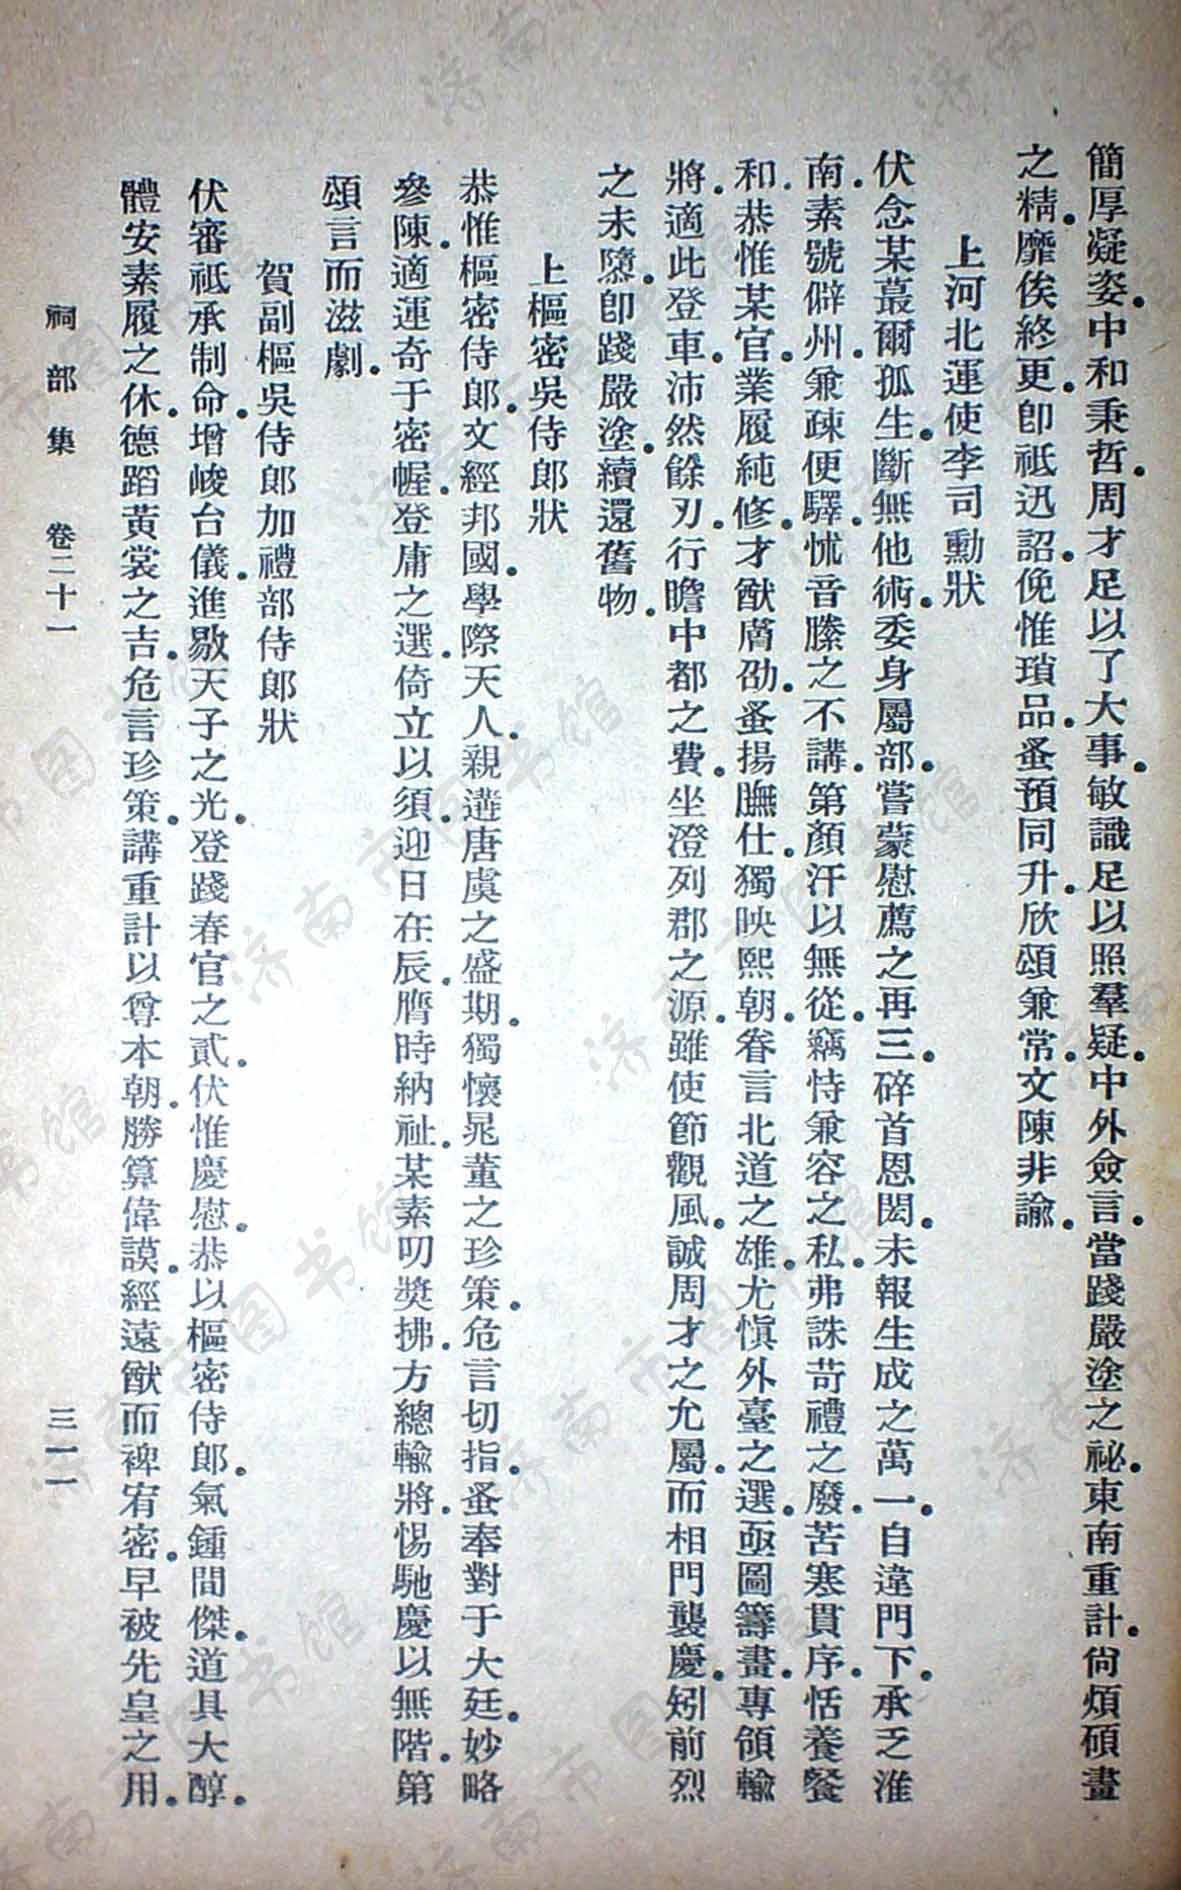 簡厚凝姿。中和秉哲。周才足以了大事。敏識足以照羣疑。中外僉言。當踐嚴塗之祕。東南重計。尙煩碩畫
之精。靡俟終更。卽祗迅詔。俛惟瑣品。蚤預同升。欣頌兼常。文陳非諭。
上河北運使李司勳狀
伏念某蕞爾孤生。斷無他術。委身屬部。嘗蒙慰薦之再三。碎首恩閎。未報生成之萬一。自違門下。承乏淮
南。素號僻州。兼疎便驛。恡音縢之不講。第顏汗以無從。竊恃兼容之私。弗誅苛禮之廢。苦寒貫序。恬養餐
和。恭惟某官。業履純修。才猷膚劭。蚤揚膴仕。獨映熙朝。眷言北道之雄。尤愼外臺之選。亟圖籌畫。專領輸
將。適此登車。沛然餘刃。行瞻中都之費。坐澄列郡之源。雖使節觀風。誠周才之允屬。而相門襲慶。矧前烈
之未隳。卽踐嚴塗。續還舊物。
上樞密吳侍郎狀
恭惟樞密侍郎。文經邦國。學際天人。親遘唐虞之盛期。獨懷晁董之珍策。危言切指。蚤奉對于大廷。妙略
參陳。適運奇于密幄。登庸之選。倚立以須。迎日在辰。膺時納祉。某素叨奬拂。方總輸將。惕馳慶以無階。第
頌言而滋劇。
賀副樞吳侍郎加禮部侍郎狀
伏審祗承制命。增峻台儀。進敭天子之光。登踐春官之貳。伏惟慶慰。恭以樞密侍郎。氣鍾間傑。道具大醇。
體安素履之休。德蹈黃裳之吉。危言珍策。講重計以尊本朝。勝算偉謨。經遠猷而裨宥密。早被先皇之用。
祠部集 卷二十一 三一一
濟南市图书馆